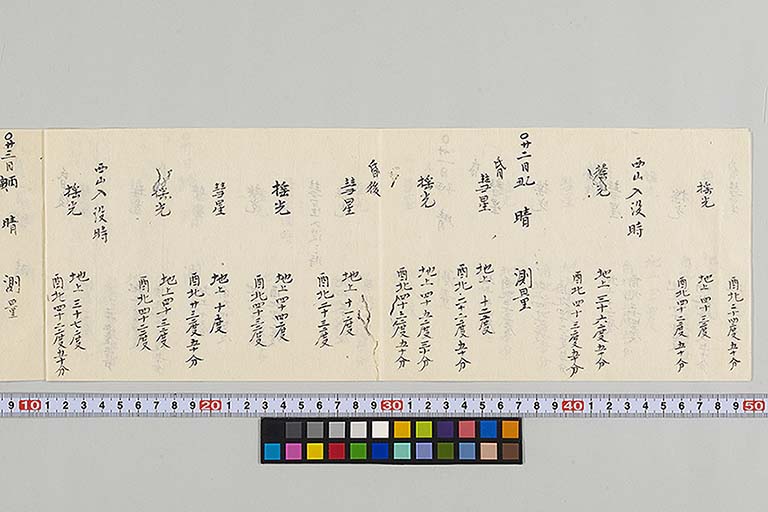 酉北二十四度五十分
揺光 地上四十三度
酉北四十二度五十分
西山入没時
揺光 地上三十六度五十分
酉北四十三度五十分
〇廿二日 晴 測量
昏 彗星 地上十二度
酉北二十二度五十分
揺光 地上四十五度三十分
酉北四十三度五十分
昏後
彗星 地上十一度
酉北二十三度
揺光 地上四十四度
酉北四十三度
彗星 地上十度
酉北廿三度五十分
揺光 地上四十三度
酉北四十三度
西山入没時
揺光 地上三十七度
酉北四十三度五十分
〇廿三日 晴 測量
9 10 1 2 3 4 5 6 7 8 9 20 1 2 3 4 5 6 7 8 9 30 1 2 3 4 5 6 7 8 9 40 1 2 3 4 5 6 7 8 9 50